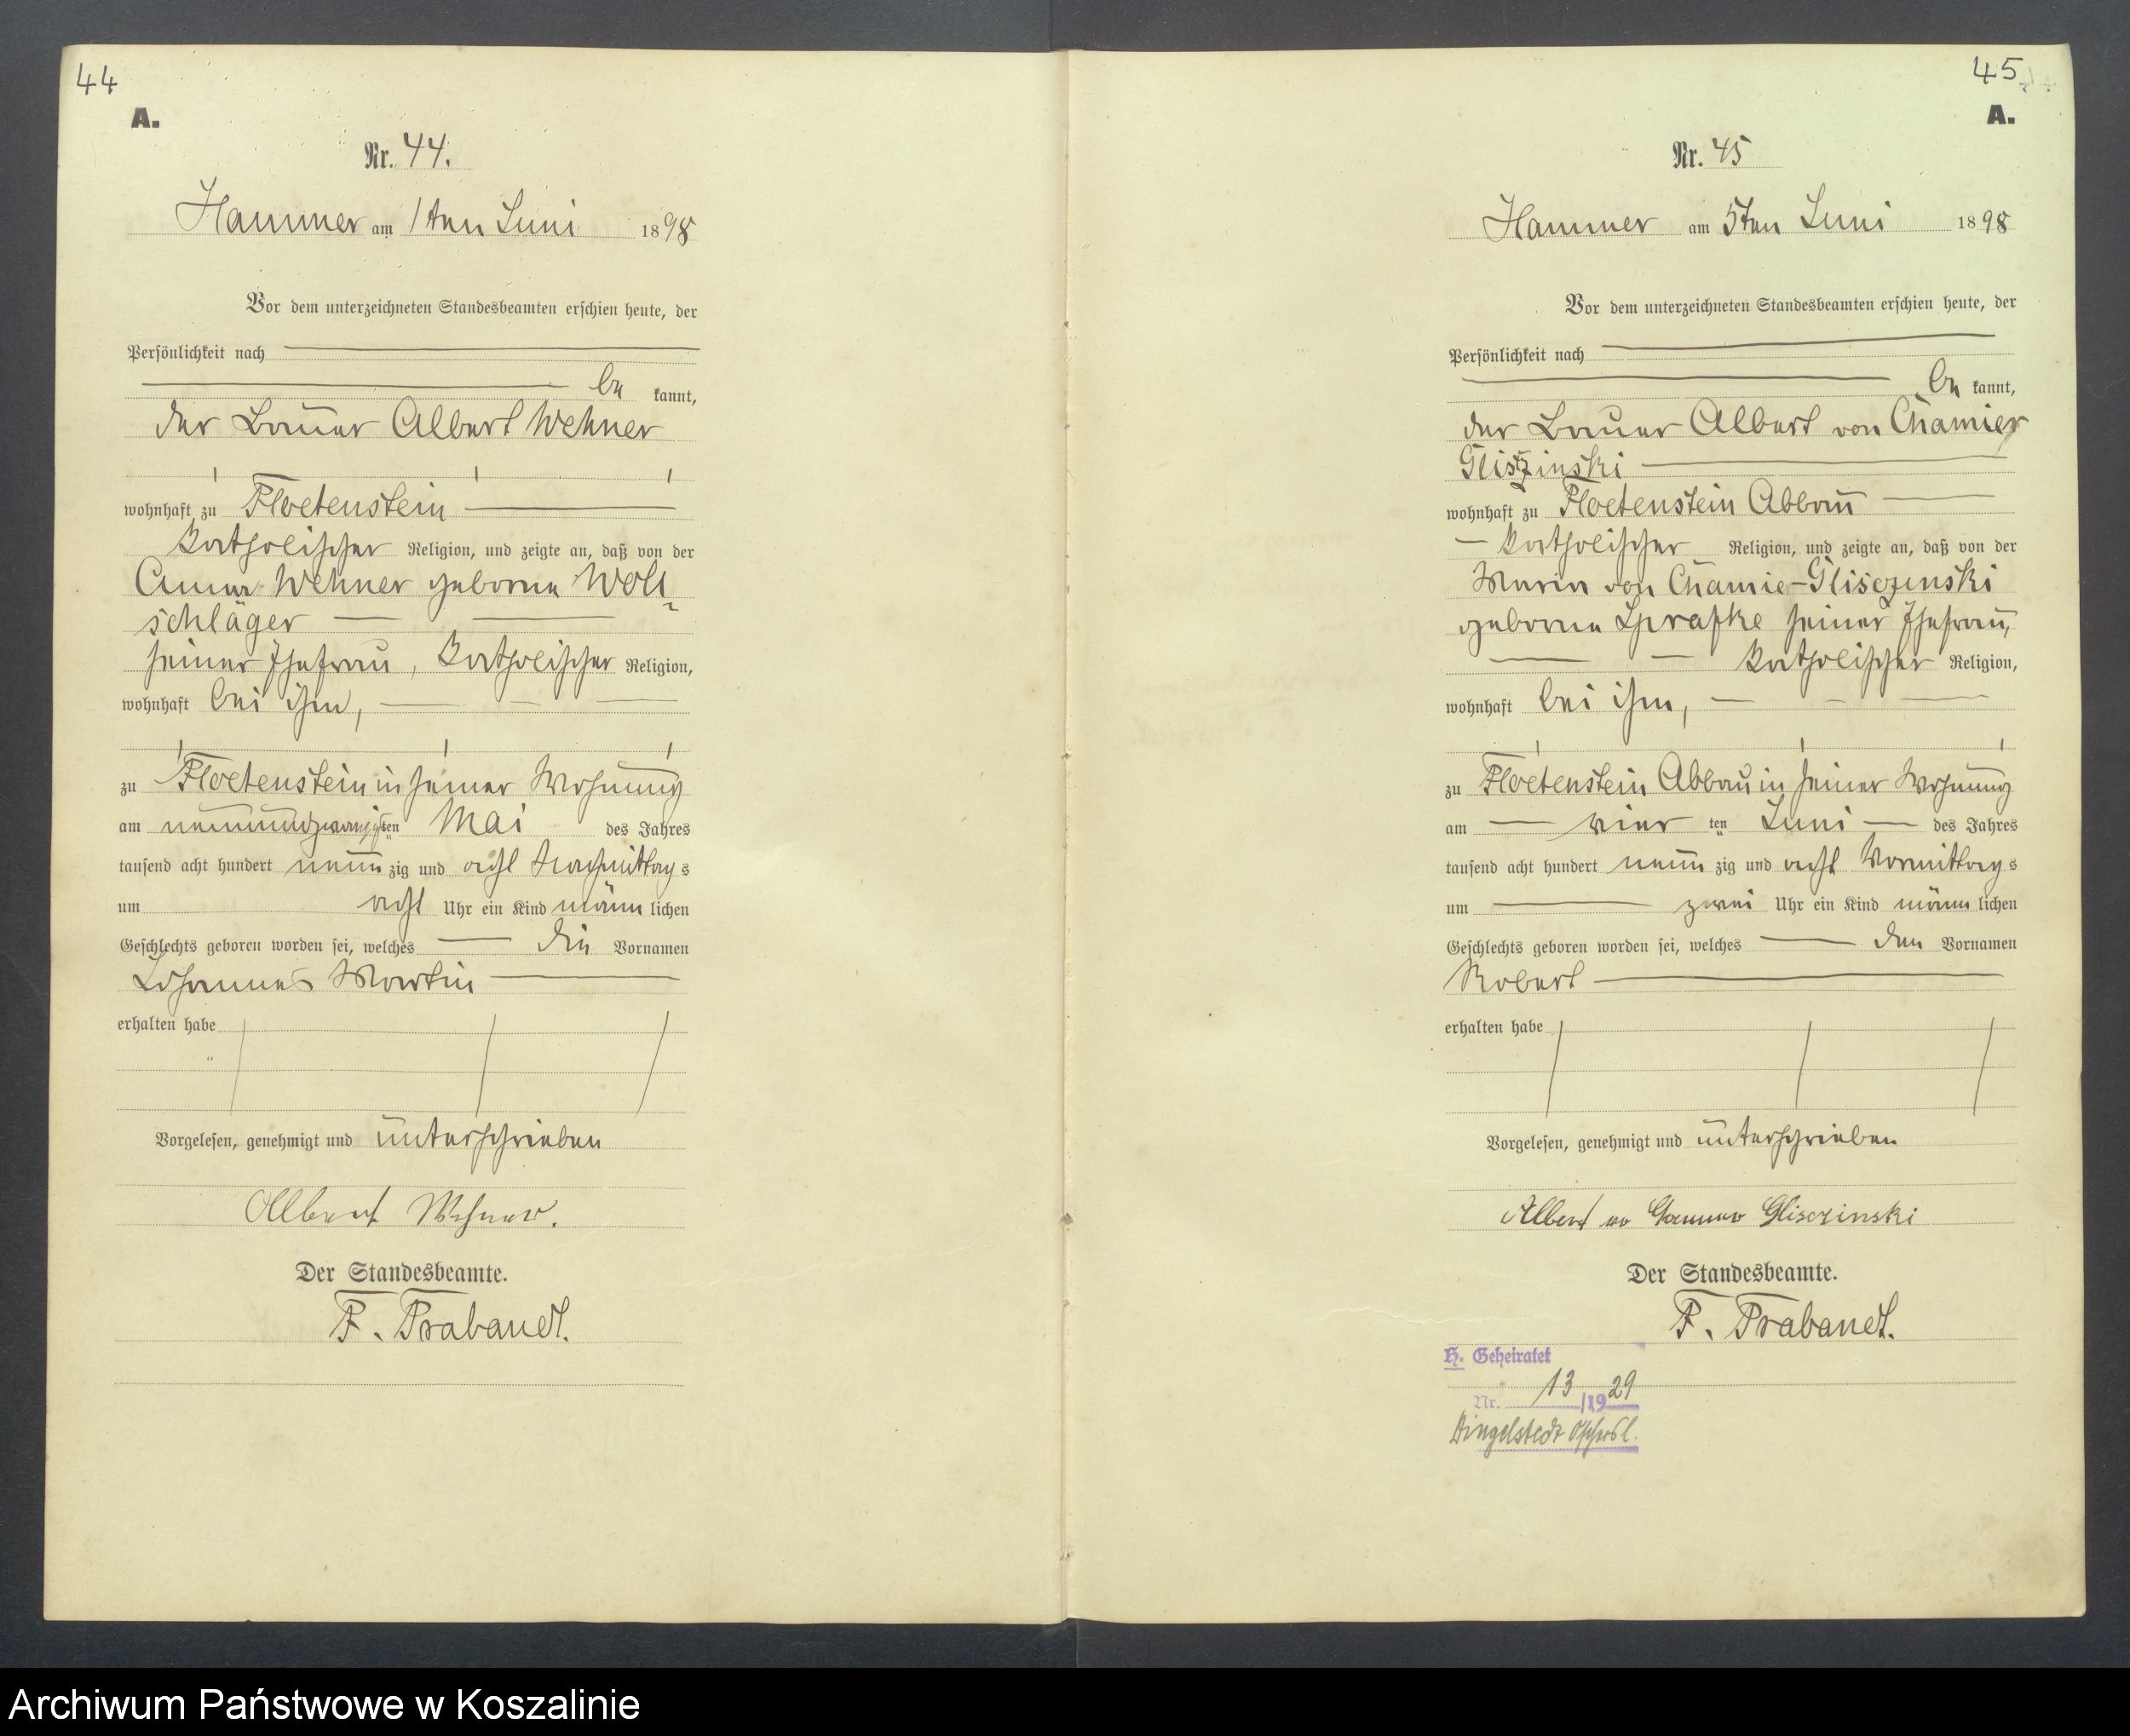 44
A.
Nr. 44.
Hammer am 1ten Juni 1898
Vor dem unterzeichneten Standesbeamten erschien heute, der
Persönlichkeit nach
be kannt,
der Bauer Albert Wehner
wohnhaft zu Floetenstein
katholischer Religion, und zeigte an, daß von der
Anna Wehner geborne Woll
schläger
seiner Ehefrau, katholischer Religion,
wohnhaft bei ihm,
zu Floetenstein in seiner Wohnung
am neunundzwanzigsten Mai des Jahres
tausend acht hundert neun zig und acht Nachmittag s
um acht Uhr ein Kind männ lichen
Geschlechts geboren worden sei, welches die Vornamen
Johannes Martin
erhalten habe
Vorgelesen, genehmigt und unterschrieben
Albert Wehner.
Der Standesbeamte.
F. Prabandt.
45
A.
Nr. 45
Hammer am 5ten Juni 1898
Vor dem unterzeichneten Standesbeamten erschien heute, der
Persönlichkeit nach
be kannt,
der Bauer Albert von Chamier
Gliszinski
wohnhaft zu Floetenstein Abbau
katholischer Religion, und zeigte an, daß von der
Maria von Chamie-Glisczinski
geborne seiner Ehefrau,
katholischer Religion,
wohnhaft bei ihm,
zu Floetenstein Abbau in seiner Wohnung
am vier ten Juni des Jahres
tausend acht hundert neun zig und acht Vormittag s
um zwei Uhr ein Kind männ lichen
Geschlechts geboren worden sei, welches den Vornamen
Robert
erhalten habe
Vorgelesen, genehmigt und unterschrieben
Albert Glisczinski
Der Standesbeamte.
F. Prabandt.
H. Geheiratet
Nr. 13 /1929
Dingelstedt
Archiwum Państwowe w Koszalinie